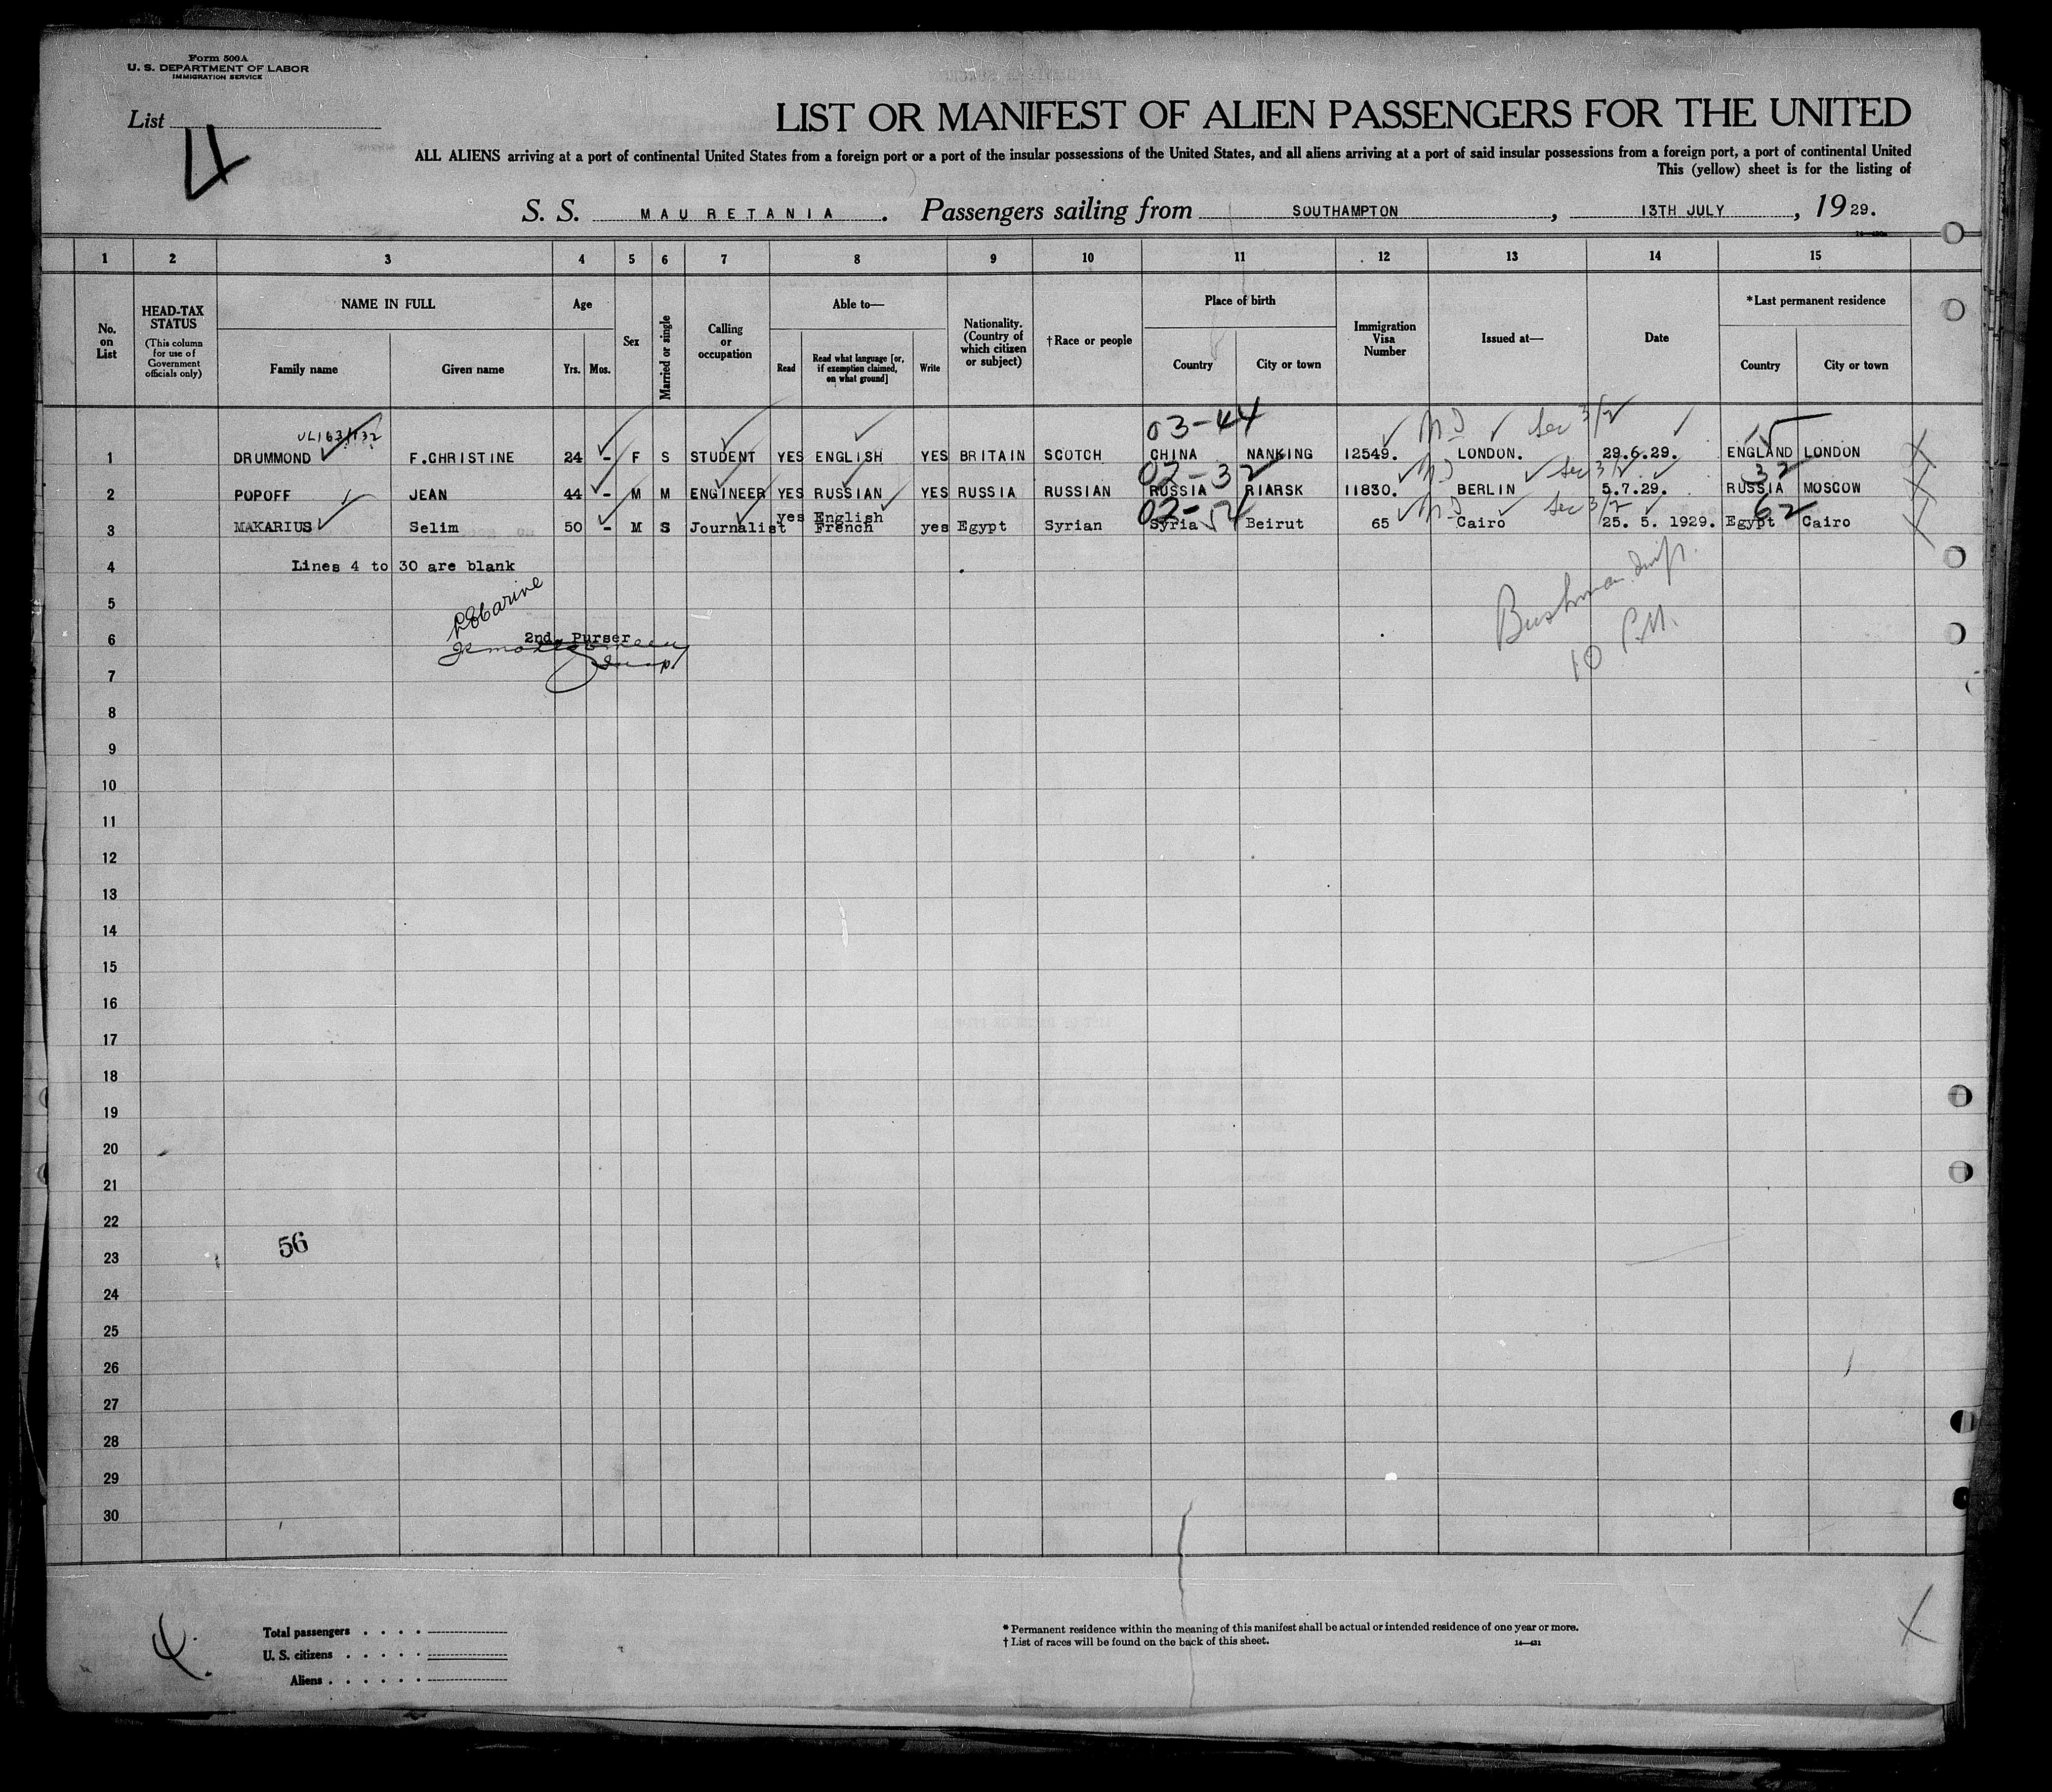 Form 500A
U. S. DEPARTMENT OF LABOR
IMMIGRATION SERVICE
List
4
LIST OR MANIFEST OF ALIEN PASSENGERS FOR THE UNITED
ALL ALIENS arriving at a port of continental United States from a foreign port or a port of the insular possessions of the United States, and all aliens arriving at a port of said insular possessions from a foreign port, a port of continental United
This (yellow) sheet is for the listing of
S. S. MAURETANIA. Passengers sailing from SOUTHAMPTON, 13TH JULY, 1929.
1 2 3 4 5 6 7 8 9 10 11 12 13 14 15
No. on List
HEAD-TAX STATUS (This column for use of Government officials only)
NAME IN FULL
Family name Given name
Age
Yrs. Mos.
Sex
Married or single
Calling or occupation
Able to—
Read Read what language [or, if exemption claimed, on what ground] Write
Nationality. (Country of which citizen or subject)
†Race or people
Place of birth
Country City or town
Immigration Visa Number
Issued at—
Date
*Last permanent residence
Country City or town
03-44 Sec 3/2
1 DRUMMOND F.CHRISTINE 24 - F S STUDENT YES ENGLISH YES BRITAIN SCOTCH CHINA NANKING 12549. LONDON. 29.6.29. ENGLAND LONDON
02-32 Sec 3/2 32
2 POPOFF JEAN 44 - M M ENGINEER YES RUSSIAN YES RUSSIA RUSSIAN RUSSIA RIARSK 11830. BERLIN 5.7.29. RUSSIA MOSCOW
02-54 Sec 3/2 62
yes English
3 MAKARIUS Selim 50 - M S Journalist French yes Egypt Syrian Syria Beirut 65 Cairo 25. 5. 1929. Egypt Cairo
4 Lines 4 to 30 are blank
5
6 2nd. Purser
Bushman
10 P.M.
7
8
9
10
11
12
13
14
15
16
17
18
19
20
21
22
56
23
24
25
26
27
28
29
30
4.
Total passengers
U. S. citizens
Aliens
* Permanent residence within the meaning of this manifest shall be actual or intended residence of one year or more.
† List of races will be found on the back of this sheet. 14—431